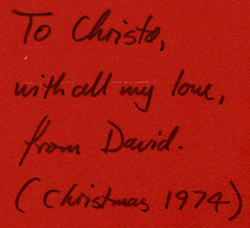 To Christa,
with all my love,
from David.
(Christmas 1974)